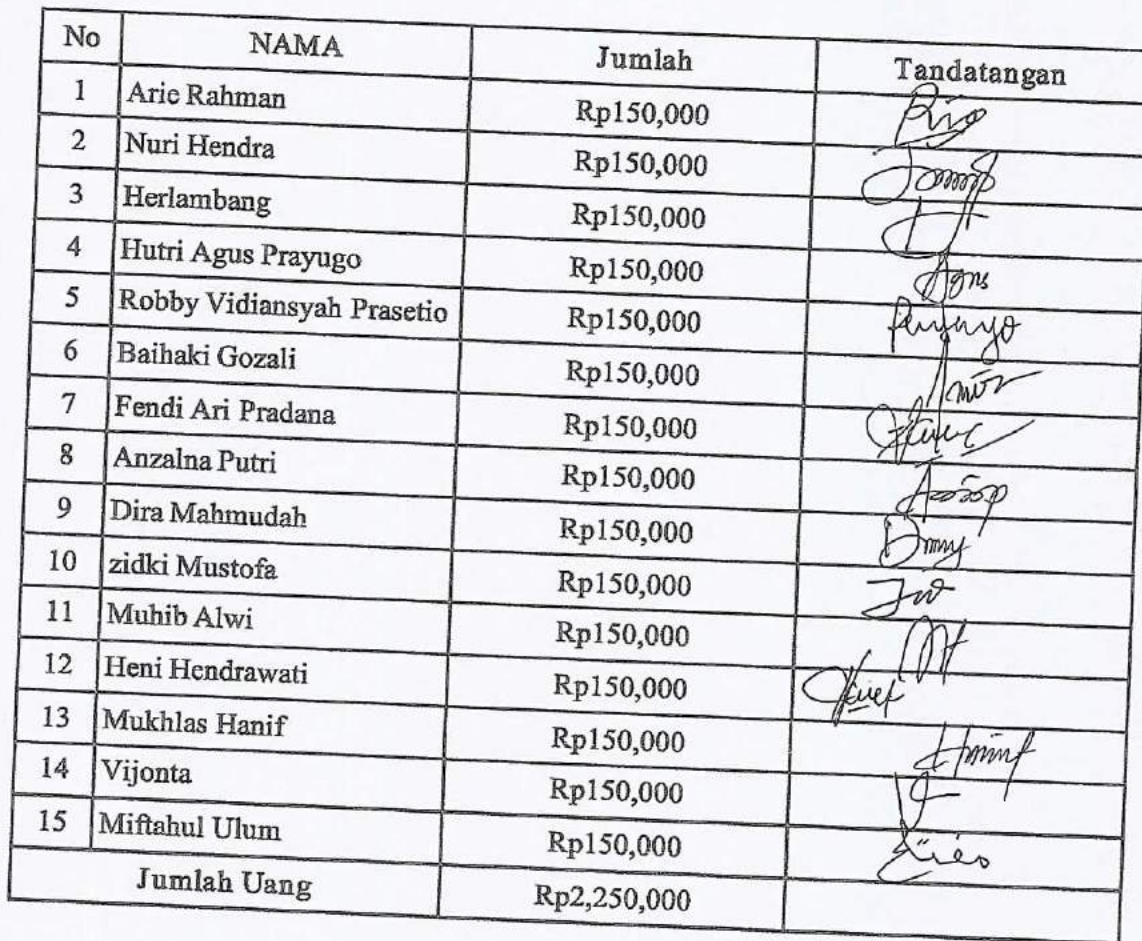 No NAMA Jumlah Tandatangan
1 Arie Rahman Rp150,000
2 Nuri Hendra Rp150,000
3 Herlambang Rp150,000
4 Hutri Agus Prayugo Rp150,000 Agus
5 Robby Vidiansyah Prasetio Rp150,000
6 Baihaki Gozali Rp150,000
7 Fendi Ari Pradana Rp150,000
8 Anzalna Putri Rp150,000
9 Dira Mahmudah Rp150,000
10 zidki Mustofa Rp150,000
11 Muhib Alwi Rp150,000
12 Heni Hendrawati Rp150,000
13 Mukhlas Hanif Rp150,000
14 Vijonta Rp150,000
15 Miftahul Ulum Rp150,000
Jumlah Uang Rp2,250,000